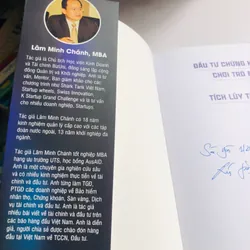 Lâm Minh Chánh, MBA
Tác giả là Chủ tịch Học viện Kinh Doanh
và Tài chính BizUni, đồng sáng lập cộng
đồng Quản trị và Khởi nghiệp. Anh là tư
vấn, Mentor, Ban giám khảo cho các
chương trình như Shark Tank Việt Nam,
Startup wheels, Swiss Innovation,
K Startup Grand Challenge và là tư vấn
cho nhiều doanh nghiệp, Startups.
Tác giả Lâm Minh Chánh có 18 năm
kinh nghiệm quản lý cấp cao với các tập
đoàn nước ngoài, 13 năm khởi nghiệp đa
ngành.
Tác giả Lâm Minh Chánh tốt nghiệp MBA
hạng ưu trường UTS, học bổng AusAID.
Anh là một chuyên gia nghiên cứu sâu
và có nhiều kinh nghiệm thực tiễn về tài
chính và đầu tư. Anh từng làm TGĐ,
PTGĐ các doanh nghiệp về Bảo hiểm
nhân thọ, Chứng khoán, Sàn vàng, Dịch
vụ tài chính và đầu tư. Anh là tác giả
nhiều bài viết về tài chính và đầu tư trên
các báo hàng đầu Việt Nam. Anh là diễn
giả, người chia sẻ được chào đón hàng
đầu tại Việt Nam về TCCN, Đầu tư.
ĐẦU TƯ CHỨNG K
CHƠI TRÒ
TÍCH LŨY T